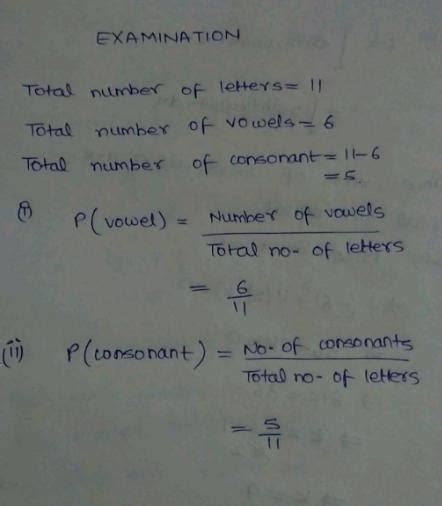 EXAMINATION
Total number of letters = 11
Total number of vowels = 6
Total number of consonant = 11-6
= 5.
(i) P(vowel) = Number of vowels
Total no. of letters
= 6
11
(ii) P(consonant) = No. of consonants
Total no. of letters
= 5
11